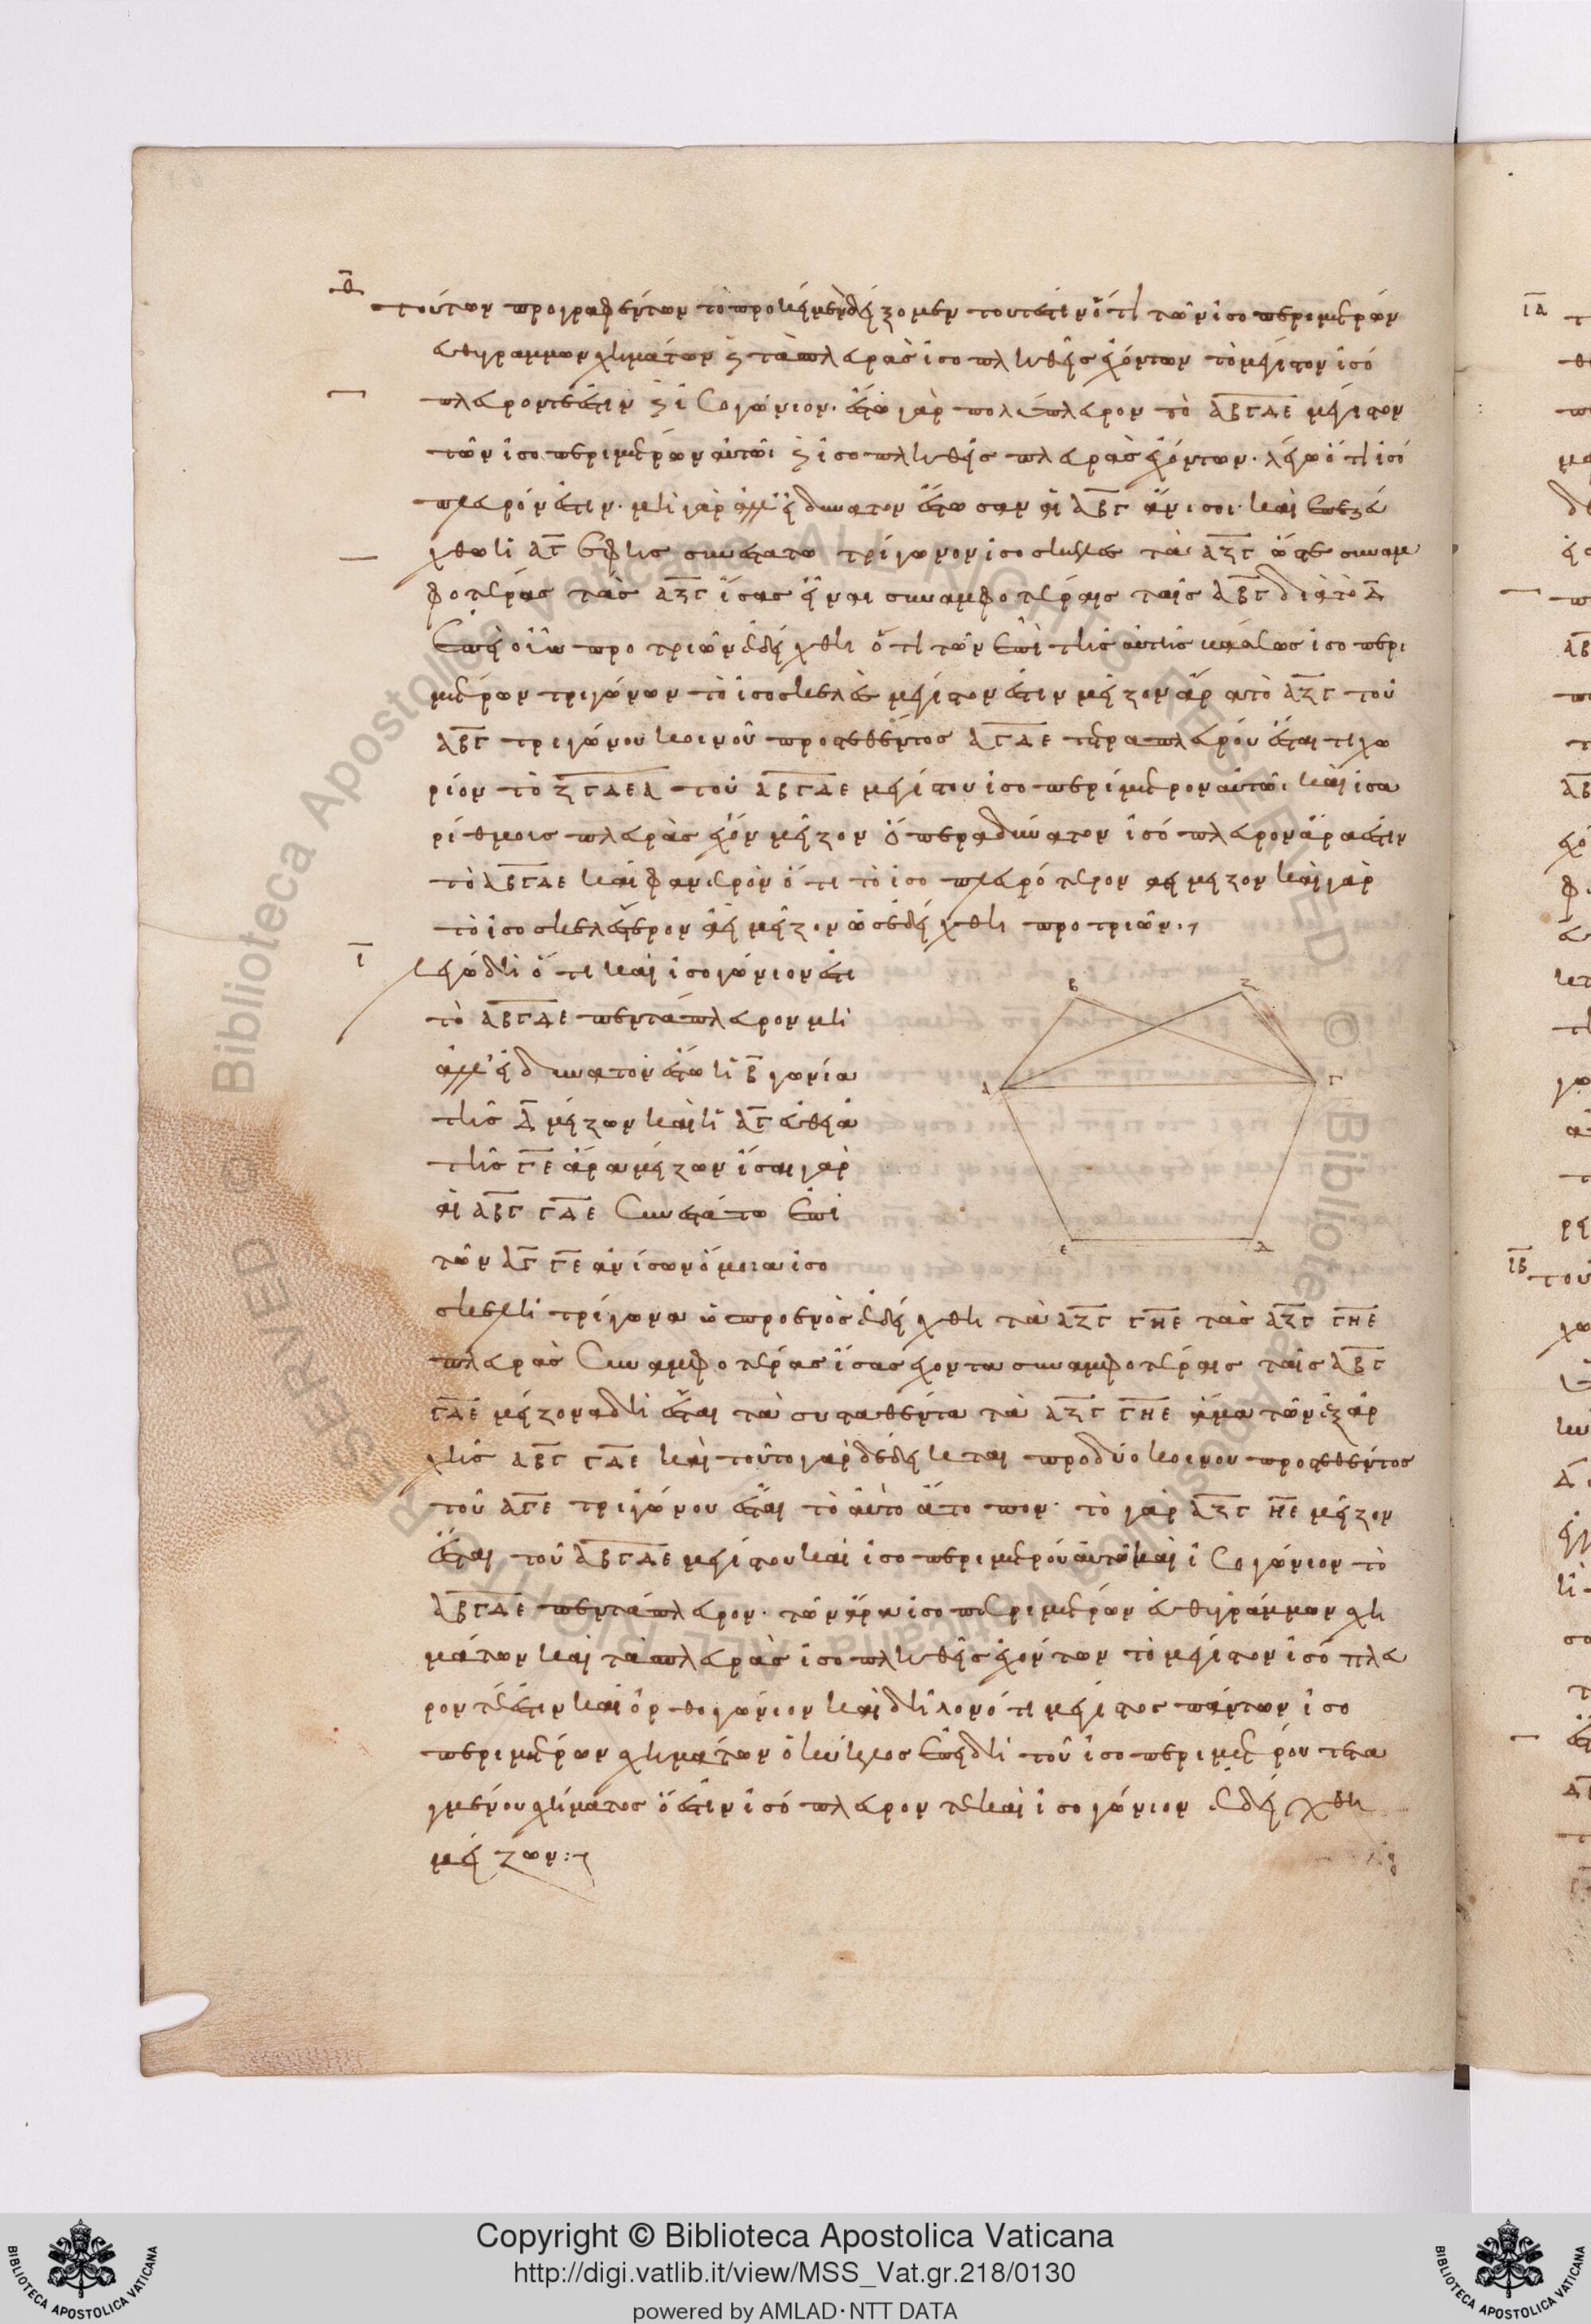 θ
τούτων προγραφέντων τὸ προκείμενον δείξομεν τουτέστιν ὅτι τῶν ἰσοπεριμέτρων
εὐθυγράμμων σχημάτων καὶ τὰς πλευρὰς ἰσοπληθεῖς ἐχόντων τὸ μέγιστον ἰσό
πλευρόν τέ ἐστιν καὶ ἰσογώνιον. ἔστω γὰρ πολύπλευρον τὸ ΑΒΓΔΕ μέγιστον
τῶν ἰσοπεριμέτρων αὐτῶι καὶ ἰσοπληθεῖς πλευρὰς ἐχόντων. λέγω ὅτι ἰσό
πλευρόν ἐστιν. μὴ γὰρ ἀλλ' εἰ δυνατὸν ἔστωσαν αἱ ΑΒΓ ἄνισοι. καὶ ἐπεζεύ
χθω ἡ ΑΓ ἐφ' ἧς συνεστάτω τρίγωνον ἰσοσκελὲς τὸ ΑΖΓ ὥστε συναμ
φοτέρας τὰς ΑΖΓ ἴσας εἶναι συναμφοτέραις ταῖς ΑΒΓ διὰ τὸ Δ
ἐπεὶ οὖν πρὸ τριῶν ἐδείχθη ὅτι τῶν ἐπὶ τῆς αὐτῆς βάσεως ἰσοπερι
μέτρων τριγώνων τὸ ἰσοσκελὲς μέγιστόν ἐστιν μεῖζον ἄρα τὸ ΑΖΓ τοῦ
ΑΒΓ τριγώνου κοινοῦ προστεθέντος ΑΓΔΕ τετραπλεύρου ἔσται τι χω
ρίον τὸ ΖΓΔΕΑ τοῦ ΑΒΓΔΕ μεγίστου ἰσοπερίμετρον αὐτῶι καὶ ἰσα
ρίθμοις πλευρὰς ἔχον μεῖζον ὅπερ ἀδύνατον ἰσόπλευρον ἄρα ἐστὶν
τὸ ΑΒΓΔΕ καὶ φανερὸν ὅτι τὸ ἰσοπλευρότερον ἀεὶ μεῖζον καὶ γὰρ
τὸ ἰσοσκελέστερον ἀεὶ μεῖζον ὡς ἐδείχθη πρὸ τριῶν.
ι
λέγω δὴ ὅτι καὶ ἰσογώνιον ἐστι
τὸ ΑΒΓΔΕ πεντάπλευρον μὴ
ἀλλ' εἰ δυνατὸν ἔστω ἡ Β γωνία
τῆς Δ μείζων καὶ ἡ ΑΓ εὐθεῖα
τῆς ΓΕ ἄρα μείζων ἴσαι γὰρ
αἱ ΑΒΓ ΓΔΕ συνεστάτω ἐπὶ
τῶν ΑΓ ΓΕ ἀνίσων ὅμοια ἰσο
σκελῆ τρίγωνα ὡς πρὸ ἑνὸς ἐδείχθη τὰ ΑΖΓ ΓΗΕ τὰς ΑΖΓ ΓΗΕ
πλευρὰς συναμφοτέρας ἴσας ἔχοντα συναμφοτέραις ταῖς ΑΒΓ
ΓΔΕ μείζονα δὴ ἔσται τὰ συσταθέντα τὰ ΑΖΓ ΓΗΕ ἅμα τῶν ἐξ ἀρ
χῆς ΑΒΓ ΓΔΕ καὶ τοῦτο γὰρ δέδεικται πρὸ δύο κοινοῦ προστεθέντος
τοῦ ΑΓΕ τριγώνου ἔσται τὸ αὐτὸ ἄτοπον. τὸ γὰρ ΑΖΓ ΗΕ μεῖζον
ἔσται τοῦ ΑΒΓΔΕ μεγίστου καὶ ἰσοπεριμέτρου αὐτῶι καὶ ἰσογώνιον τὸ
ΑΒΓΔΕ πεντάπλευρον. τῶν ἄρα ἰσοπεριμέτρων εὐθυγράμμων σχη
μάτων καὶ τὰς πλευρὰς ἰσοπληθεῖς ἐχόντων τὸ μέγιστον ἰσόπλευ
ρόν τέ ἐστιν καὶ ὀρθογώνιον καὶ δῆλον ὅτι μέγιστος πάντων ἰσο
περιμέτρων σχημάτων ὁ κύκλος ἐπεὶ δὴ τοῦ ἰσοπεριμέτρου τετα
γμένου σχήματος ὅ ἐστιν ἰσόπλευρόν τε καὶ ἰσογώνιον ἐδείχθη
μείζων:
Β Ζ
Α Γ
Ε Δ
ΙΑ
ΙΒ
Copyright © Biblioteca Apostolica Vaticana
http://digi.vatlib.it/view/MSS_Vat.gr.218/0130
powered by AMLAD·NTT DATA
BIBLIOTECA APOSTOLICA VATICANA
BIBLIOTECA APOSTOLICA VATICANA